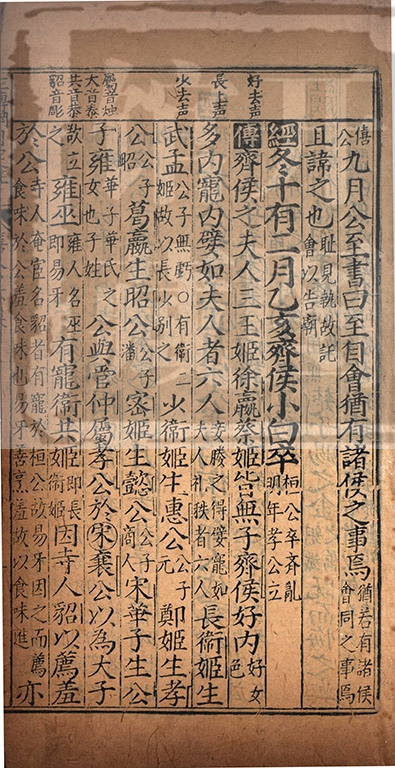 僖公
九月公至書曰至自會猶有諸侯之事焉猶若有諸侯會同之事焉
且諱之也耻見執故託會以告廟
經冬十有二月乙亥齊侯小白卒桓公卒齊亂明年孝公立
好去声
傳齊侯之夫人三王姬徐嬴蔡姬皆無子齊侯好内好女色
長上声
多内寵内嬖如夫人者六人妾媵之得嬖寵如夫人礼秩者六人長衛姬生
少去声
武孟公子無虧○有衛二姬故以長少別之少衛姬生惠公公子元鄭姬生孝
公公子昭葛嬴生昭公公子潘密姬生懿公公子商人宋華子生公
屬音烛
大音泰
子雍華子華氏之女也子姓公與管仲屬孝公於宋襄公以為大子
共音恭
貂音彫
之故立雍巫雍人名巫即易牙有寵衛共姬即長衛姬因寺人貂以薦羞
於公寺人奄官名貂者有寵於桓公故易牙因之而薦食味於公羞食味也易牙善烹羞故以食味進亦